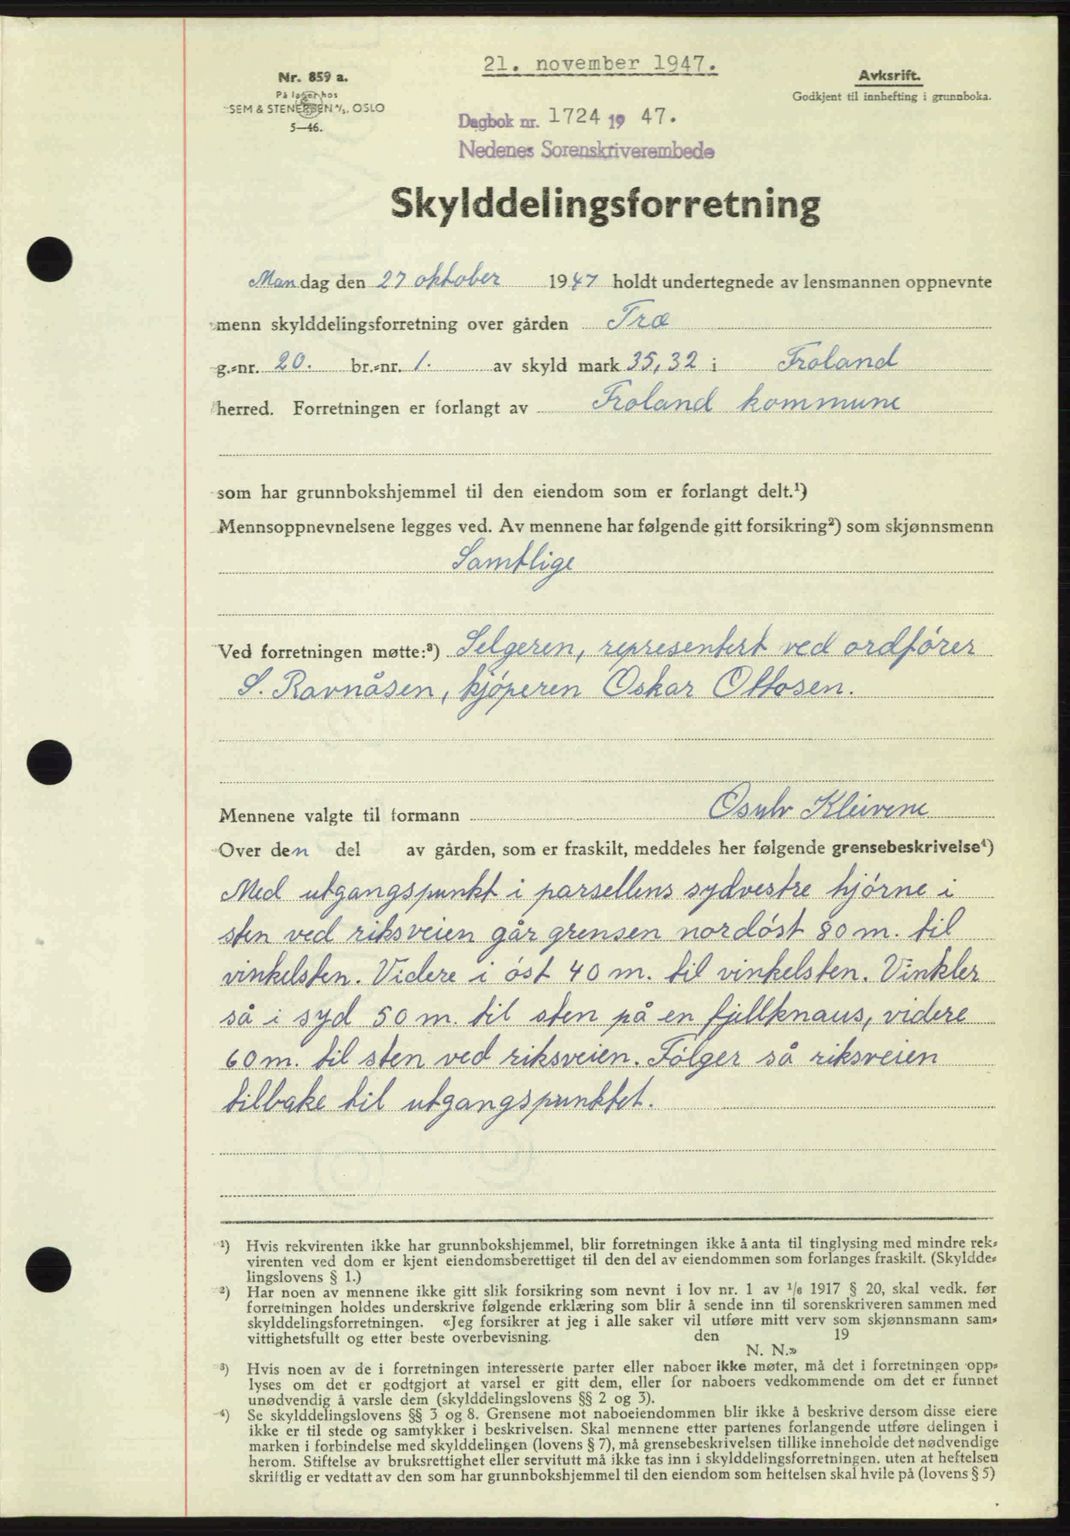 21. november 1947.
Nr. 859 a.
På lager hos
SEM & STENERSEN A/S, OSLO
5—46.
Avksrift.
Godkjent til innhefting i grunnboka.
Dagbok nr. 1724 19 47.
Nedenes Sorenskriverembede
Skylddelingsforretning
Mandag den 27 oktober 1947 holdt undertegnede av lensmannen oppnevnte
menn skylddelingsforretning over gården Træ
g.-nr. 20. br.-nr. 1. av skyld mark 35,32 i Froland
herred. Forretningen er forlangt av Froland kommune
som har grunnbokshjemmel til den eiendom som er forlangt delt.¹)
Mennsoppnevnelsene legges ved. Av mennene har følgende gitt forsikring²) som skjønnsmenn
Samtlige
Ved forretningen møtte:³) Selgeren, representert ved ordfører
S. Ravnåsen, kjøperen Oskar Ottosen.
Mennene valgte til formann Osulv Kleivene
Over den del av gården, som er fraskilt, meddeles her følgende grensebeskrivelse⁴)
Med utgangspunkt i parsellens sydvestre hjørne i
sten ved riksveien går grensen nordøst 80 m. til
vinkelsten. Videre i øst 40 m. til vinkelsten. Vinkler
så i syd 50 m. til sten på en fjellknaus, videre
60 m. til sten ved riksveien. Følger så riksveien
tilbake til utgangspunktet.
¹) Hvis rekvirenten ikke har grunnbokshjemmel, blir forretningen ikke å anta til tinglysing med mindre rek-
virenten ved dom er kjent eiendomsberettiget til den del av eiendommen som forlanges fraskilt. (Skyldde-
lingslovens § 1.)
²) Har noen av mennene ikke gitt slik forsikring som nevnt i lov nr. 1 av 1/6 1917 § 20, skal vedk. før
forretningen holdes underskrive følgende erklæring som blir å sende inn til sorenskriveren sammen med
skylddelingsforretningen. «Jeg forsikrer at jeg i alle saker vil utføre mitt verv som skjønnsmann sam-
vittighetsfullt og etter beste overbevisning. den 19
N. N.»
³) Hvis noen av de i forretningen interesserte parter eller naboer ikke møter, må det i forretningen opp-
lyses om det er godtgjort at varsel er gitt dem, eller for naboers vedkommende om det er funnet
unødvendig å varsle dem (skylddelingslovens §§ 2 og 3).
⁴) Se skylddelingslovens §§ 3 og 8. Grensene mot naboeiendommen blir ikke å beskrive dersom disse eiere
ikke er til stede og samtykker i beskrivelsen. Skal mennene etter partenes forlangende utføre delingen i
marken i forbindelse med skylddelingen (lovens § 7), må grensebeskrivelsen tillike inneholde det nødvendige
herom. Stiftelse av bruksrettighet eller servitutt må ikke tas inn i skylddelingsforretningen, uten at heftelsen
skriftlig er vedtatt av den som har grunnbokshjemmel til den eiendom som heftelsen skal hvile på (lovens § 5)